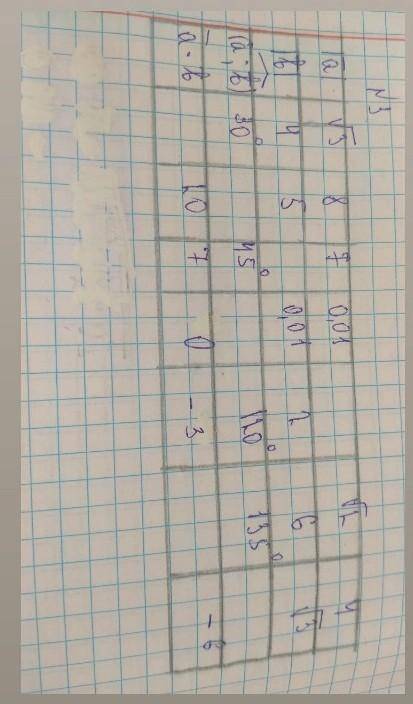 №3
|a̅| √3 8 7 0,01 √2 4
|b̅| 4 5 0,01 2 6 √3
(a̅;b̅) 30° 45° 120° 135°
a̅·b̅ 20 7 0 -3 -6